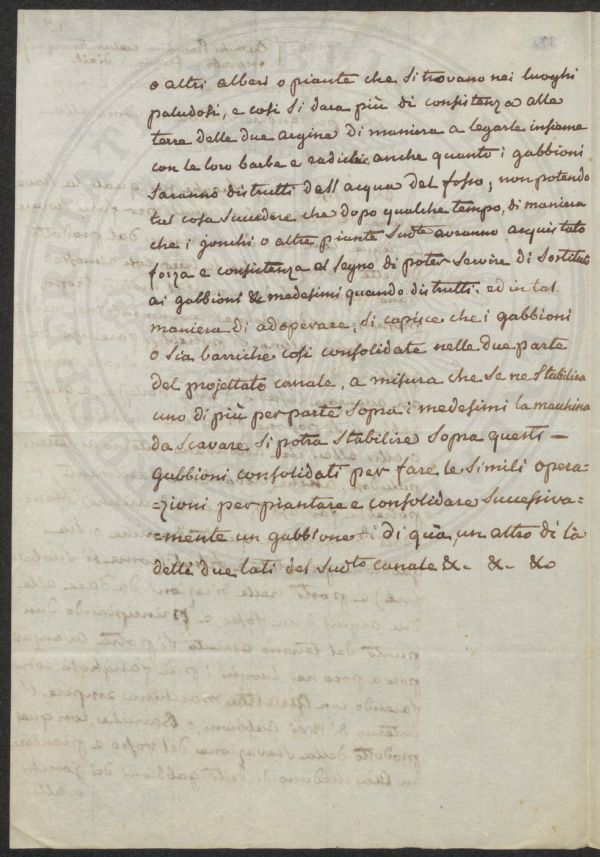 o altri alberi o piante che si trovano nei luoghi
paludosi, e cosi si dara più di consistenza alle
terre delle due argine di maniera a legarle insieme
con le loro barbe e radiche anche quanto i gabbioni
saranno distrutti dall acqua del fosso; non potendo
tal cosa succedere che dopo qualche tempo, di maniera
che i gionchi o altre piante sudte averanno acquistato
forza e consistenza al segno di poter servire di sostituto
ai gabbioni & medesimi quando distrutti. ed in tal
maniera di adoperare, si capisce che i gabbioni
o sia barriche cosi consolidate nelle due parte
del projettato canale, a misura che se ne stabilira
uno di più per parte sopra i medesimi la machina
da scavare si potra stabilire sopra questi —
gabbioni consolidati per fare le simili opera=
=zioni per piantare e consolidare successiva=
=mente un gabbione di quà, un altro di là
delli due lati del sudto canale &- &- &c